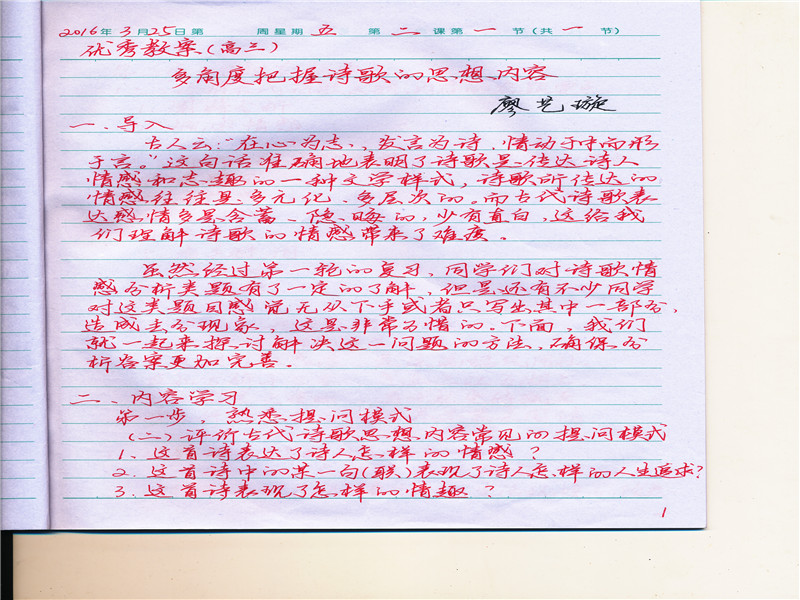 2016年3月25日第 周星期五 第二课第一节(共一节)
优秀教案(高三)
多角度把握诗歌的思想内容
廖艺璇
一、导入
古人云:“在心为志,发言为诗,情动于中而形
于言。”这句话准确地表明了诗歌是传达诗人
情感和志趣的一种文学样式,诗歌所传达的
情感往往是多元化、多层次的。而古代诗歌表
达感情多是含蓄、隐晦的,少有直白,这给我
们理解诗歌的情感带来了难度。
虽然经过第一轮的复习,同学们对诗歌情
感分析类题有了一定的了解,但是还有不少同学
对这类题目感觉无从下手或者只写出其中一部分,
造成丢分现象,这是非常可惜的。下面,我们
就一起来探讨解决这一问题的方法,确保分
析答案更加完善。
二、内容学习
第一步,熟悉提问模式
(二)评价古代诗歌思想内容常见的提问模式
1、这首诗表达了诗人怎样的情感?
2、这首诗中的某一句(联)表现了诗人怎样的人生追求?
3、这首诗表现了怎样的情趣?
1